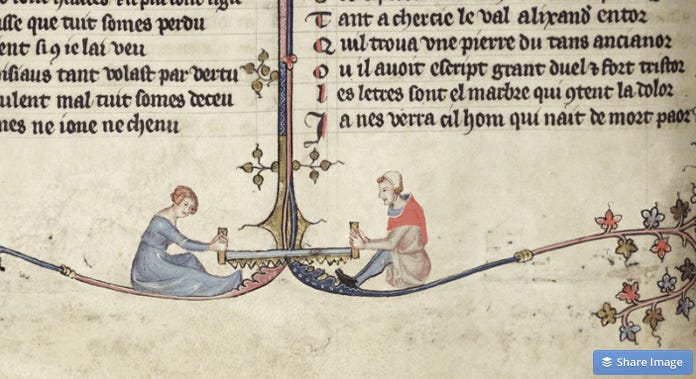 que tuit somes perdu
si q ie lai veu
tant volast par vertu
mal tuit somes deceu
ne ioue ne chenu
Tant a chercie le val alixand entor
Quil troua vne pierre du tans ancianor
Ou il auoit escript grant duel ⁊ fort tristor
les letres sont el marbre qui ꝯtent la dolor
Ja nes verra cil hom qui nait de mort paor
Share Image